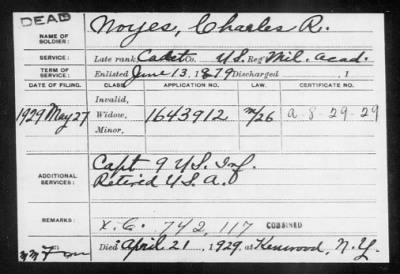 DEAD
NAME OF SOLDIER: Noyes, Charles R.
SERVICE: Late rank, Cadet Co. U.S. Reg' Mil. Acad.
TERM OF SERVICE: Enlisted June 13, 1879 Discharged , 1
DATE OF FILING. CLASS. APPLICATION NO. LAW. CERTIFICATE NO.
Invalid,
1929 May 27 Widow, 1643912 m/26 a-8-29-29
Minor,
ADDITIONAL SERVICES: Capt 9 U.S. Inf.
Retired U.S.A.
REMARKS: X.C. 742,117 COMBINED
Died April 21, 1929, at Kenwood, N.Y.